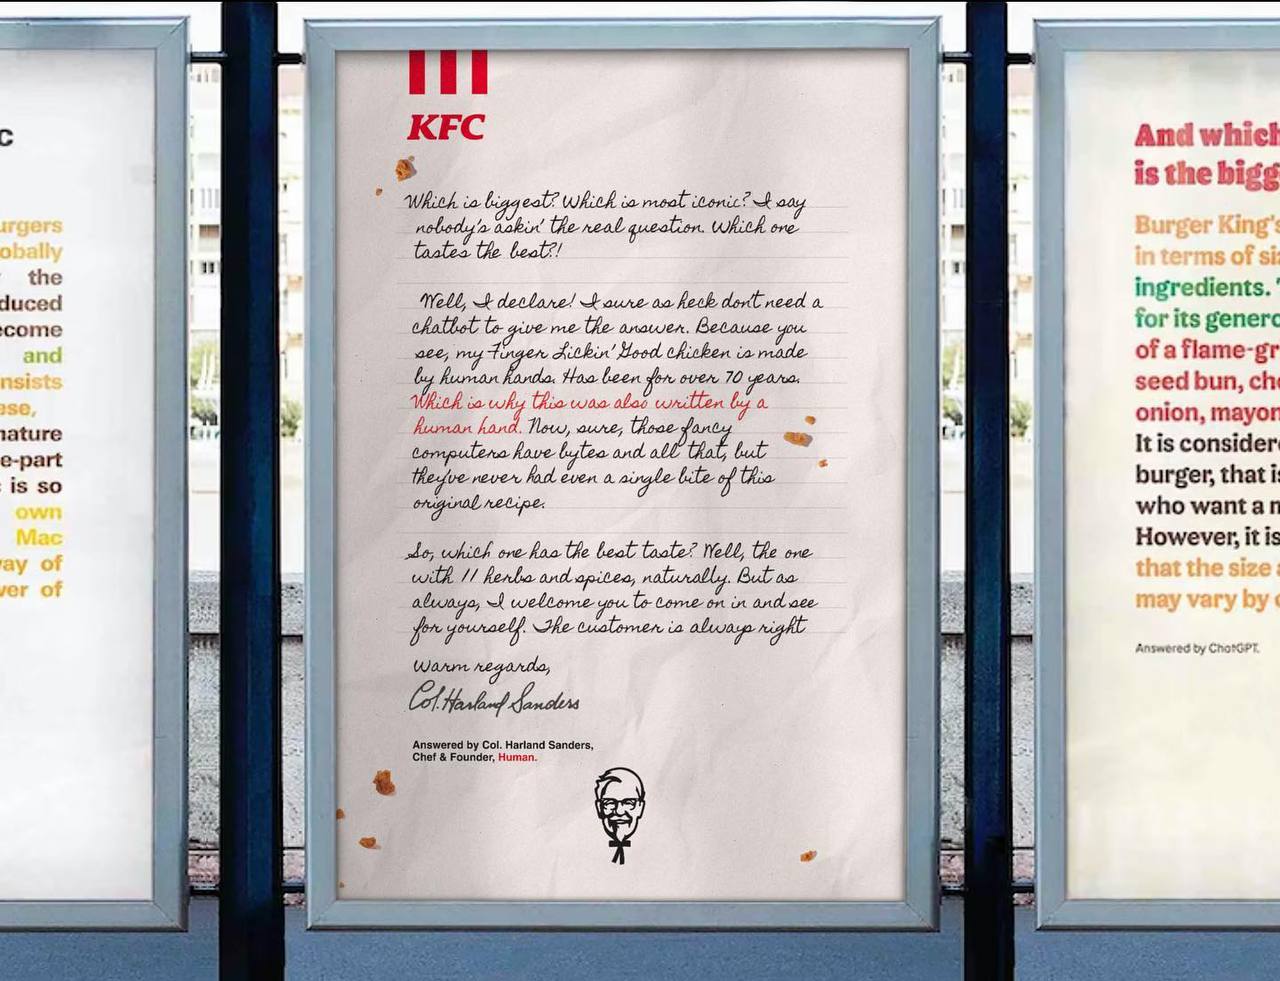 c
urgers
obally
the
duced
ecome
and
nsists
ese,
nature
e-part
is so
own
Mac
ay of
er of
KFC
Which is biggest? Which is most iconic? I say
nobody's askin' the real question. Which one
tastes the best?!
Well, I declare! I sure as heck dont need a
chatbot to give me the answer. Because you
see, my Finger Lickin' Good chicken is made
by human hands. Has been for over 70 years.
Which is why this was also written by a
human hand. Now, sure, those fancy
computers have bytes and all that, but
they've never had even a single bite of this
original recipe.
So, which one has the best taste? Well, the one
with 11 herbs and spices, naturally. But as
always, I welcome you to come on in and see
for yourself. The customer is always right
Warm regards,
Col. Harland Sanders
Answered by Col. Harland Sanders,
Chef & Founder, Human.
And which
is the bigg
Burger King's
in terms of si
ingredients.
for its genero
of a flame-gr
seed bun, che
onion, mayon
It is consider
burger, that i
who want a m
However, it is
that the size a
may vary by c
Answered by ChatGPT.